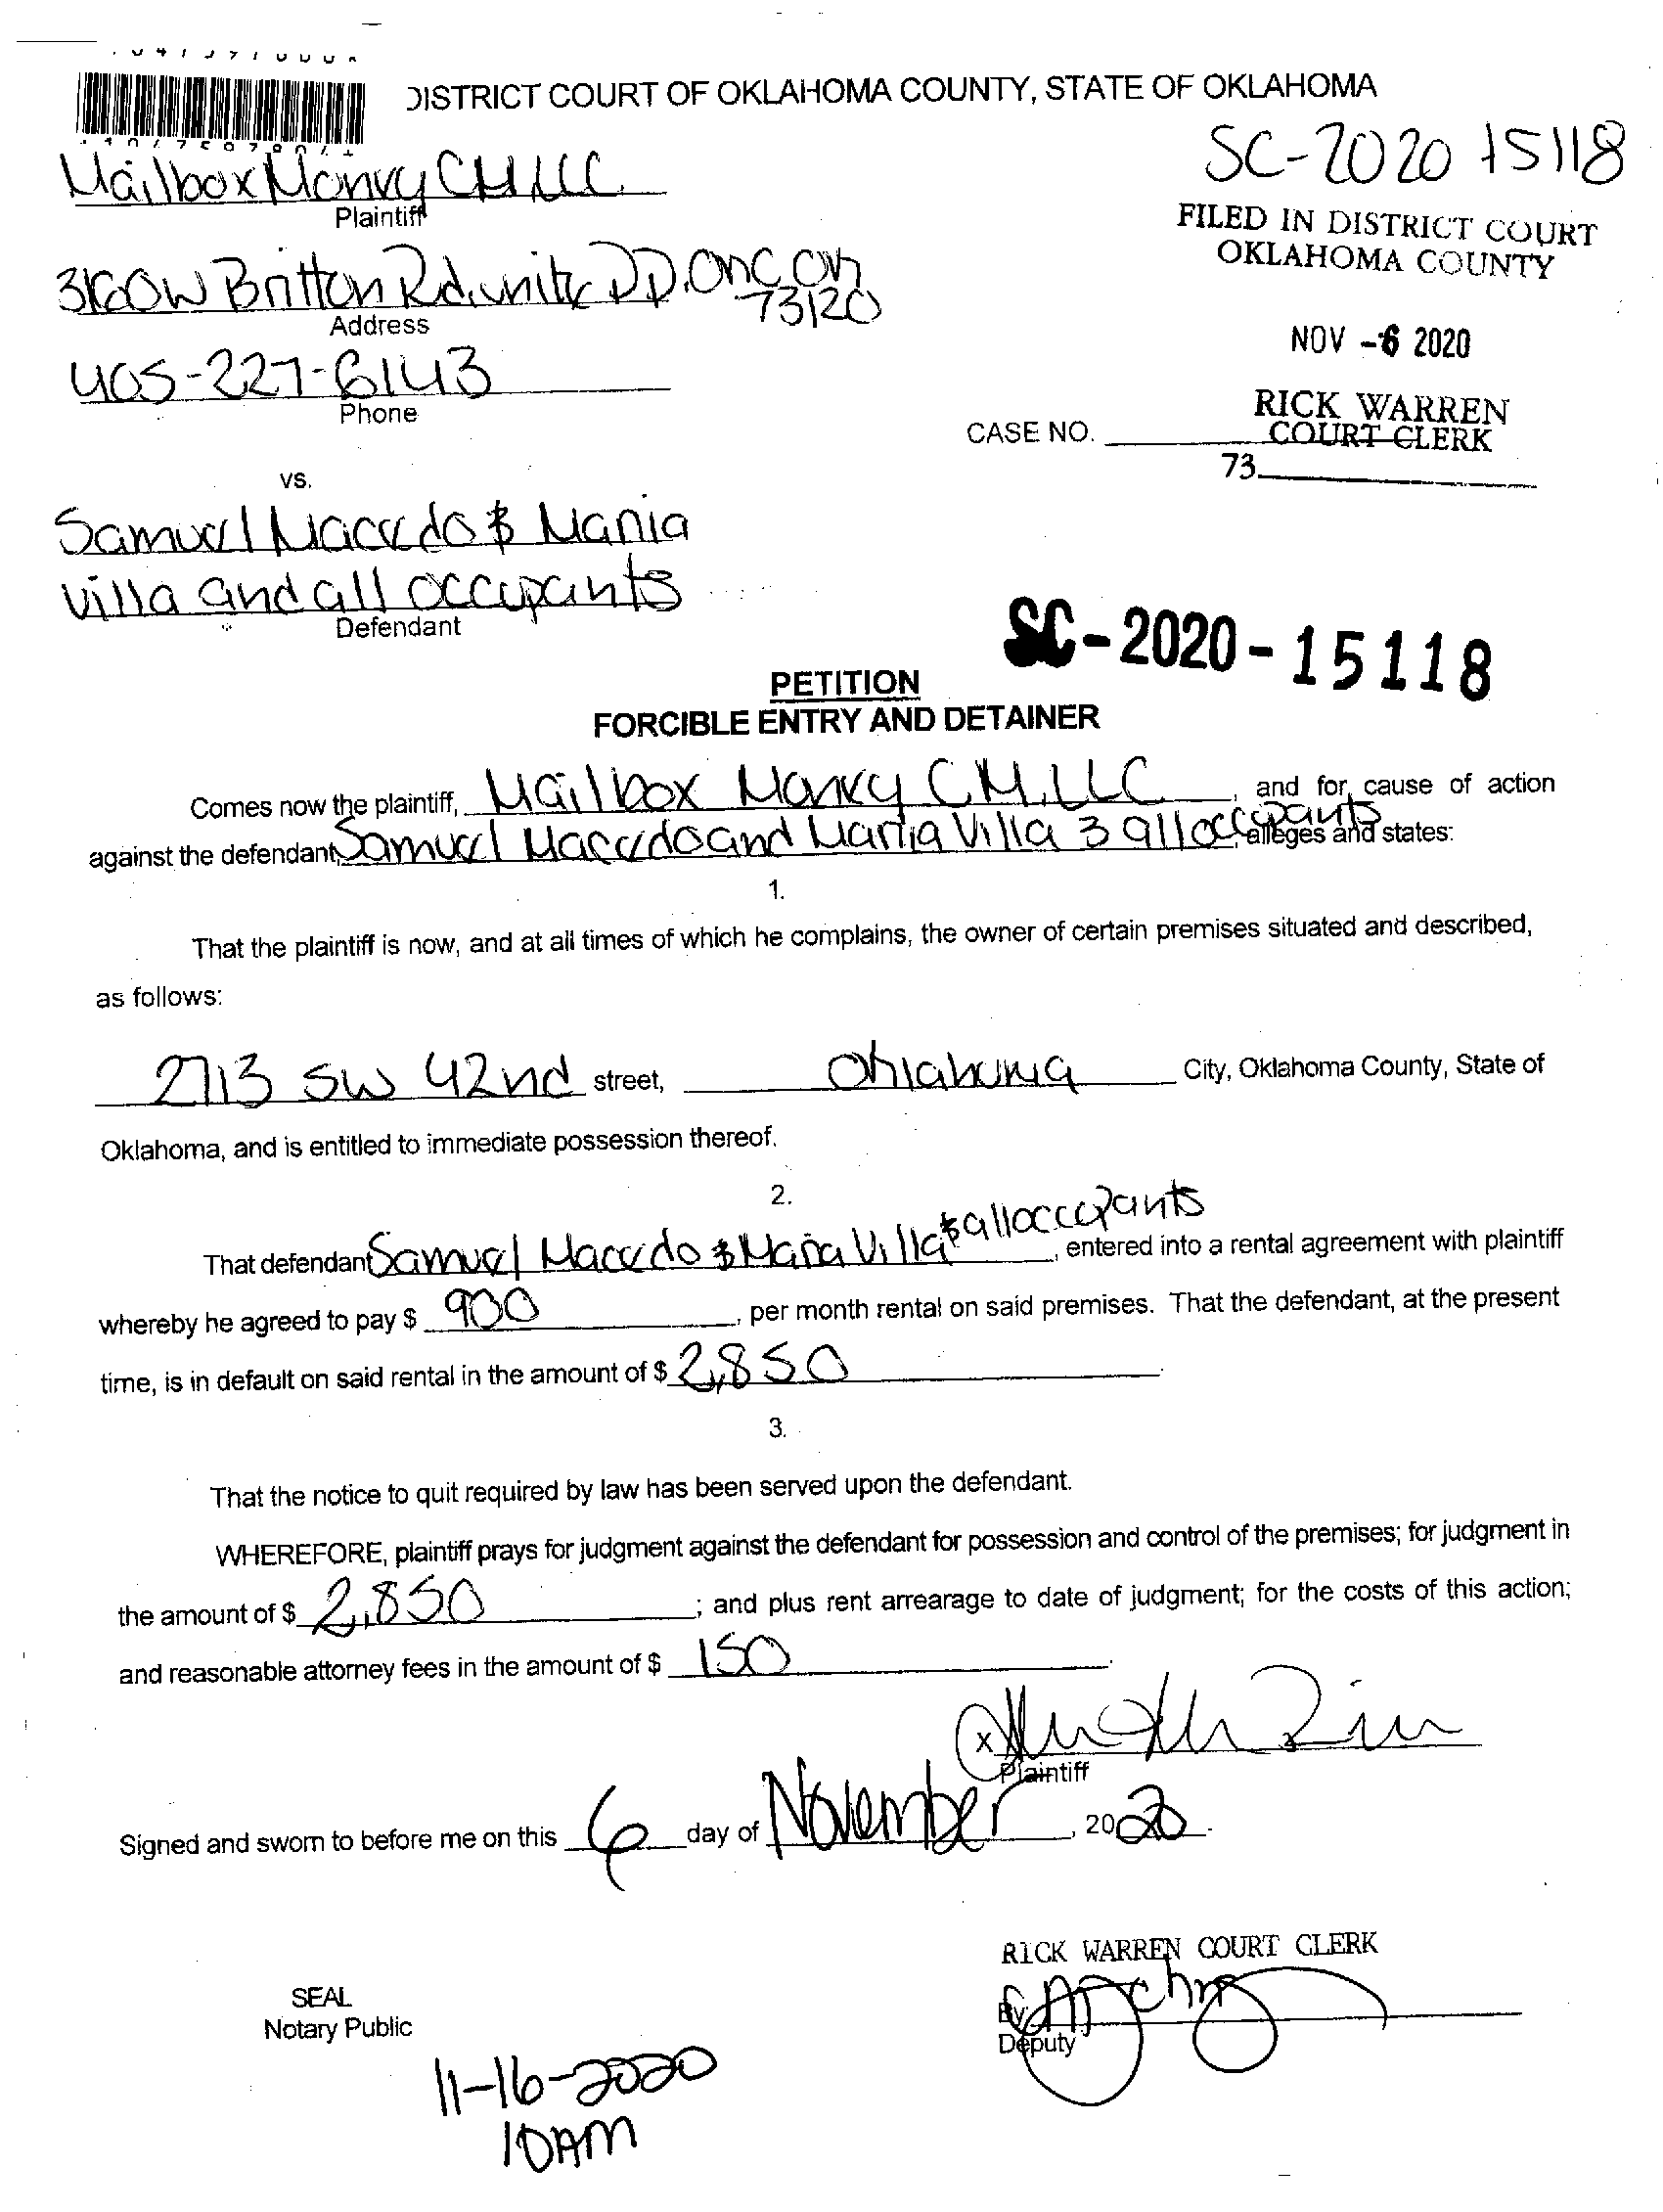 DISTRICT COURT OF OKLAHOMA COUNTY, STATE OF OKLAHOMA
SC-2020 15118
Mailbox Money CM LLC
Plaintiff
FILED IN DISTRICT COURT
OKLAHOMA COUNTY
W Britton Rd. unit DD. OKC OK
73120
Address
NOV -6 2020
405-227-6143
Phone
RICK WARREN
CASE NO. COURT CLERK
73
vs.
Samuel Macedo & Maria
Villa and all occupants
Defendant
SC-2020-15118
PETITION
FORCIBLE ENTRY AND DETAINER
Comes now the plaintiff, Mailbox Money CM, LLC, and for cause of action
against the defendant, Samuel Macedo and Maria Villa & all occupants alleges and states:
1.
That the plaintiff is now, and at all times of which he complains, the owner of certain premises situated and described,
as follows:
2713 SW 42nd street, Oklahoma City, Oklahoma County, State of
Oklahoma, and is entitled to immediate possession thereof.
2.
That defendant Samuel Macedo & Maria Villa & all occupants, entered into a rental agreement with plaintiff
whereby he agreed to pay $ 900, per month rental on said premises. That the defendant, at the present
time, is in default on said rental in the amount of $ 2,850.
3.
That the notice to quit required by law has been served upon the defendant.
WHEREFORE, plaintiff prays for judgment against the defendant for possession and control of the premises; for judgment in
the amount of $ 2,850; and plus rent arrearage to date of judgment; for the costs of this action;
and reasonable attorney fees in the amount of $ 150.
x
Plaintiff
Signed and sworn to before me on this 6 day of November, 2020.
RICK WARREN COURT CLERK
SEAL
Notary Public
By:
Deputy
11-16-2020
10AM